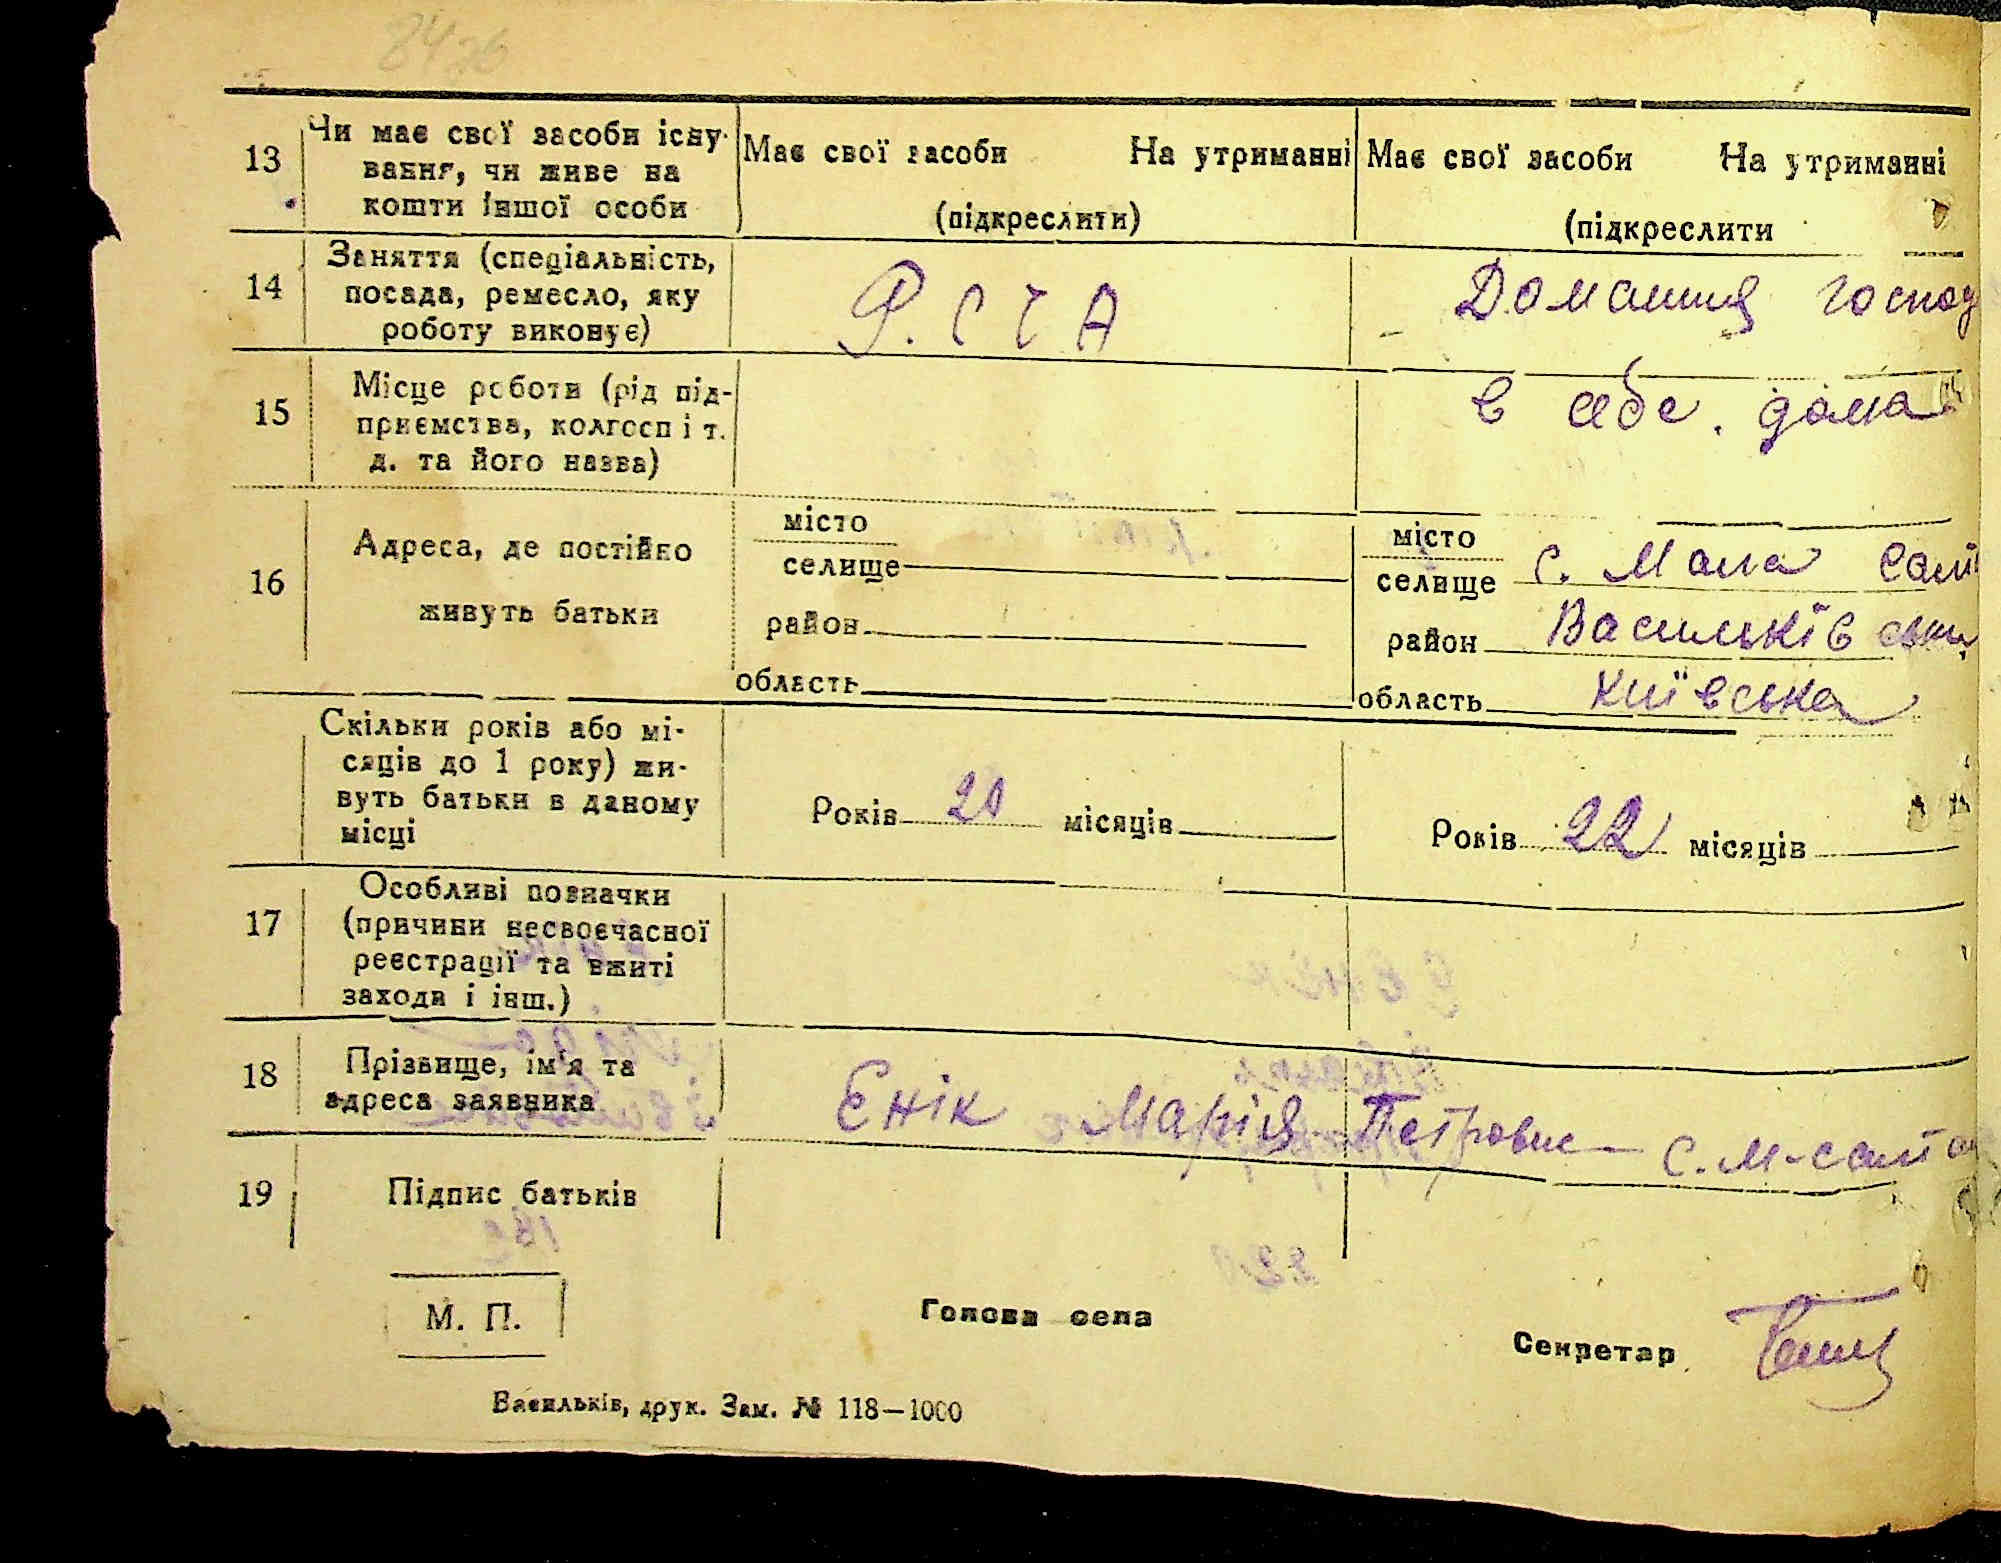 13 Чи має свої засоби існу-
вання, чи живе на
кошти іншої особи
Має свої засоби На утриманні
(підкреслити)
Має свої засоби На утриманні
(підкреслити
14 Заняття (спеціальність,
посада, ремесло, яку
роботу виконує)
Р.С Ч А
Домашня господ
15 Місце роботи (рід під-
приємства, колгосп і т.
д. та його назва)
в себе дома
16 Адреса, де постійно
живуть батьки
місто
селище
район
область
місто
селище с. Мала Салт
район Васильківськ
область Київська
Скільки років або мі-
сяців до 1 року) жи-
вуть батьки в даному
місці
Років 20 місяців
Років 22 місяців
17 Особливі позначки
(причини несвоєчасної
реєстрації та вжиті
заходи і інш.)
18 Прізвище, ім'я та
адреса заявника
Єнік Марія Петровне с. М-салта
19 Підпис батьків
М. П.
Голова села
Секретар
Васильків, друк. Зам. № 118—1000